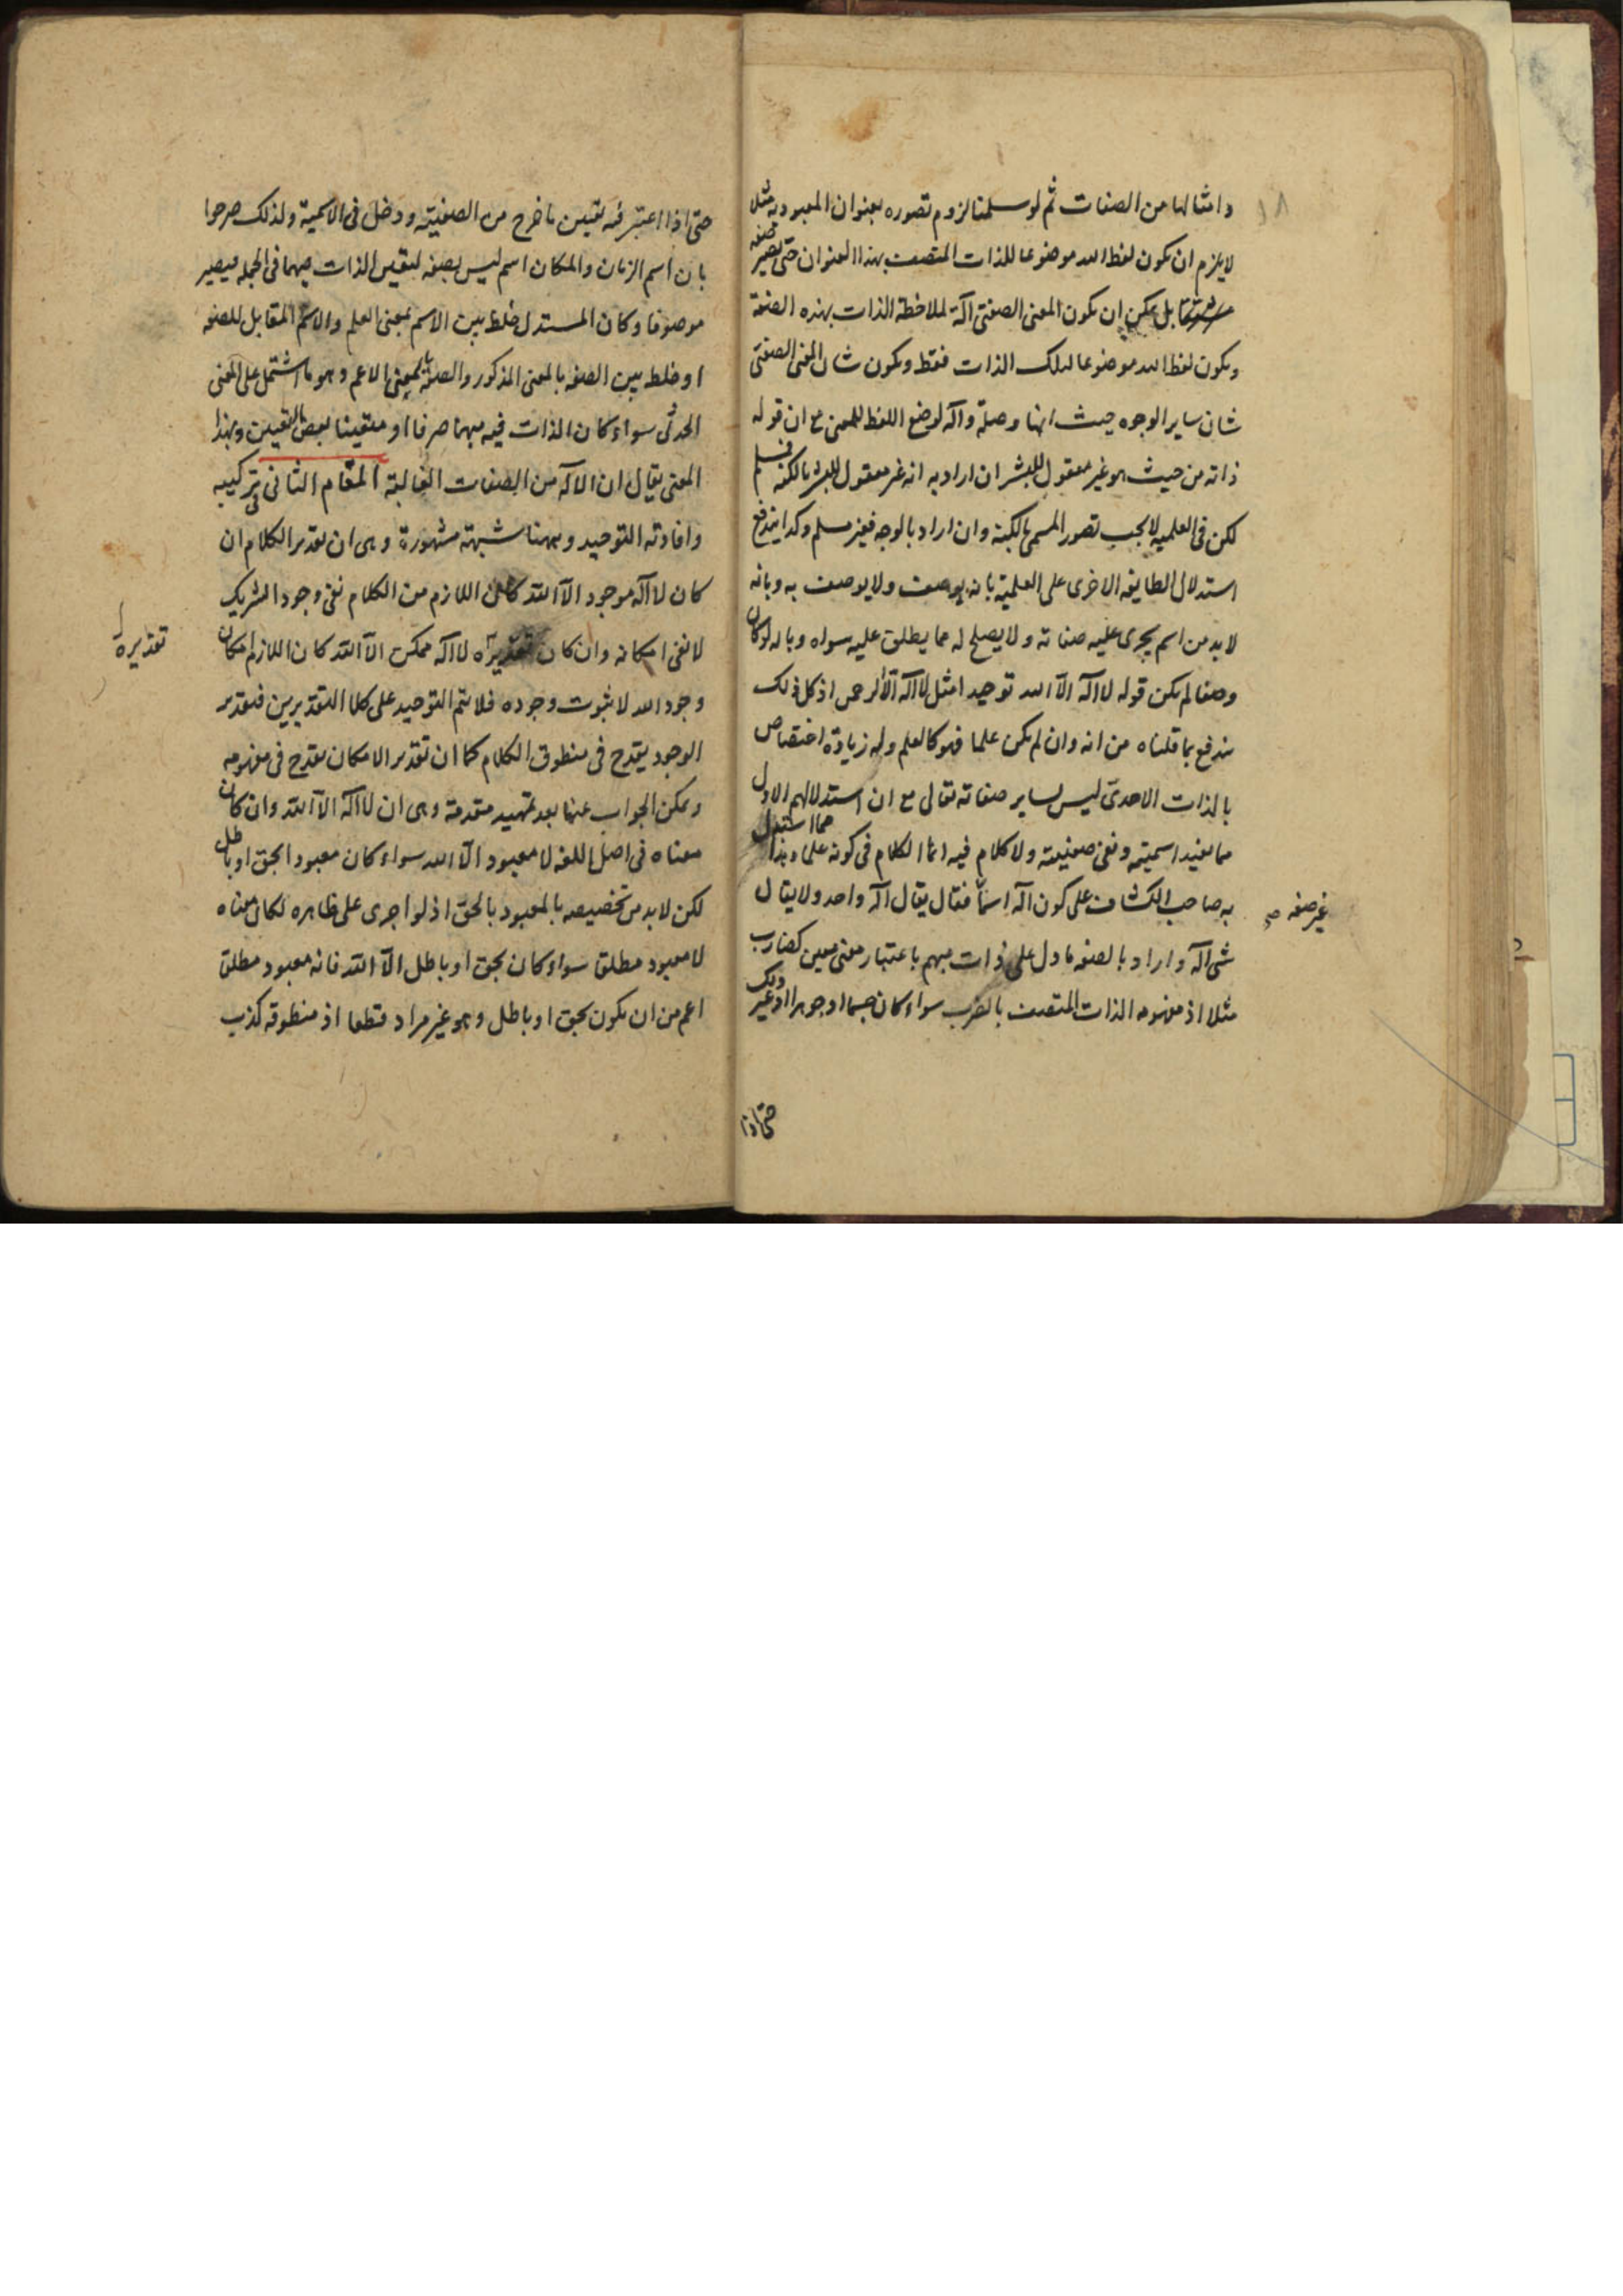 وامثالها من الصفات ثم لو سلمنا لزوم تصوره بعنوان المعبودية مثلا
لا يلزم ان يكون لفظ الله موضوعا للذات المتصف بهذا العنوان حتى يصير صفة
بل يمكن ان يكون المعنى الصفتى آلة لملاحظة الذات بهذه الصفة
ويكون لفظ الله موضوعا لتلك الذات فقط ويكون شان المعنى الصفتى
شان ساير الوجوه حيث انها وصلة وآلة لوضع اللفظ للمعنى مع ان قوله
ذاته من حيث هو غير معقول للبشر ان اراد به انه غير معقول للبشر بالكنه فمسلم
لكن فى العلمية لا يجب تصور المسمى بالكنه وان اراد بالوجه فغير مسلم وكذا يندفع
استدلال الطايفة الاخرى على العلمية بانه يوصف ولا يوصف به وبانه
لا بد من اسم يجرى عليه صفاته ولا يصلح له مما يطلق عليه سواه وبانه لو كان
وصفا لم يكن قوله لا اله الا الله توحيدا مثل لا اله الا الرحمن اذ كل ذلك
يندفع بما قلناه من انه وان لم يكن علما فهو كالعلم وله زيادة اختصاص
بالذات الاحدى ليس لساير صفاته تعالى مع ان استدلالهم الاول
مما يفيد اسميته ونفى صفتيته ولا كلام فيه انما الكلام فى كونه علما وهذا مما استدل
به صاحب الكشاف على كون اله اسما فقال يقال اله واحد ولا يقال
غير صفة صح
شىء اله واراد بالصفة ما دل على ذات مبهم باعتبار معنى معين كضارب
مثلا اذ مفهومه الذات المتصف بالضرب سواء كان جسما او جوهرا او غير ذلك
حتى اذا
حتى اذا اعتبر فيه تعيين ما خرج من الصفتية ودخل فى الاسمية ولذلك صرحوا
بان اسم الزمان والمكان اسم ليس بصفة لتعين الذات فيهما فى الجملة فيصير
موصوفا وكان المستدل خلط بين الاسم بمعنى العلم والاسم المقابل للصفة
او خلط بين الصفة بالمعنى المذكور والصفة بالمعنى الاعم وهو ما اشتمل على المعنى
الحدثى سواء كان الذات فيه مبهما صرفا او متعينا بعض التعين وبهذا
المعنى يقال ان الاله من الصفات الغالبة المقام الثانى فى تركيبه
وافادته التوحيد وههنا شبهة مشهورة وهى ان تقدير الكلام ان
كان لا اله موجود الا الله كان اللازم من الكلام نفى وجود الشريك
لا نفى امكانه وان كان تقديره لا اله ممكن الا الله كان اللازم امكان
تقديره
وجود الله لا ثبوت وجوده فلا يتم التوحيد على كلا التقديرين فتقدير
الوجود يقدح فى منطوق الكلام كما ان تقدير الامكان يقدح فى مفهومه
ويمكن الجواب عنها بعد تمهيد مقدمة وهى ان لا اله الا الله وان كان
معناه فى اصل اللغة لا معبود الا الله سواء كان معبودا بحق او باطل
لكن لا بد من تخصيصه بالمعبود بالحق اذ لو اجرى على ظاهره لكان معناه
لا معبود مطلق سواء كان بحق او باطل الا الله فانه معبود مطلق
اعم من ان يكون بحق او باطل وهو غير مراد قطعا اذ منطوقه كذب